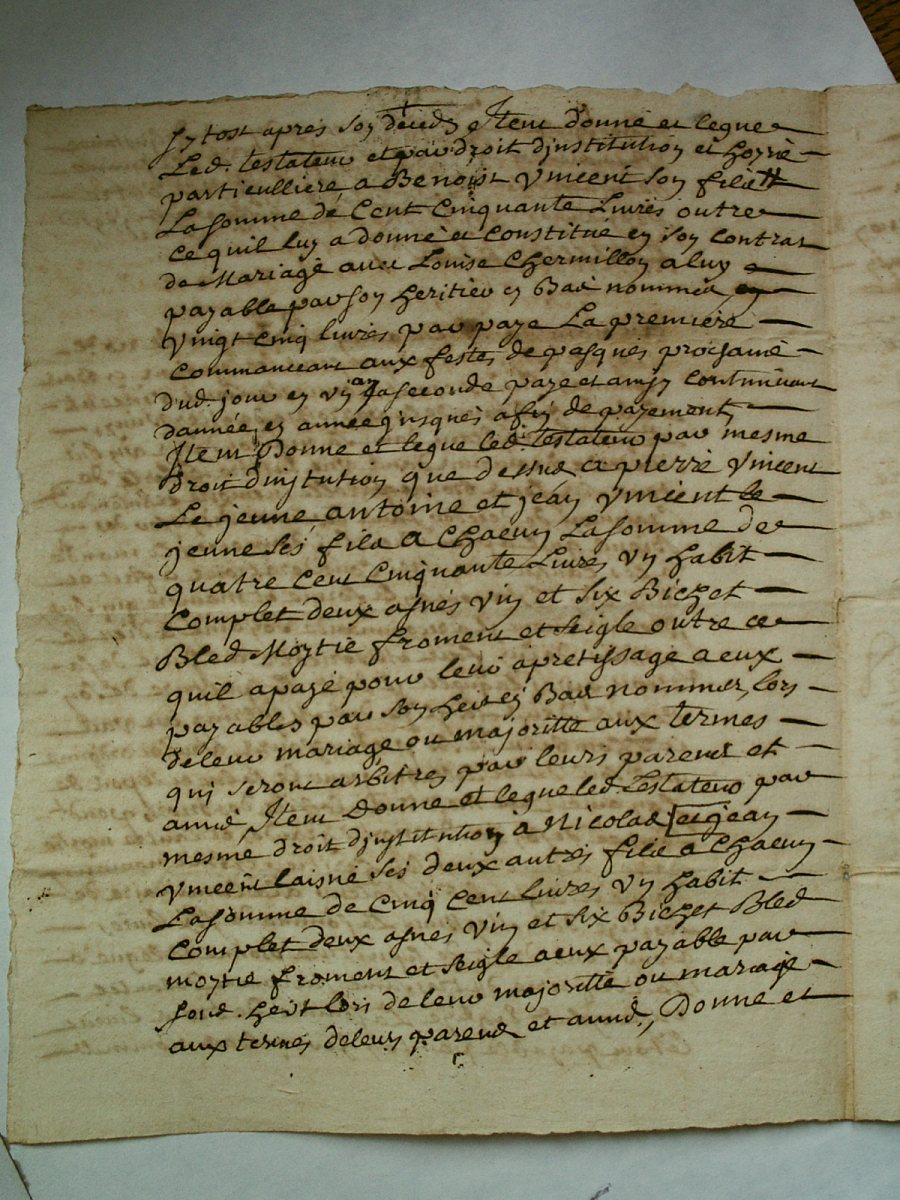 sy tost apres son deced Item donne et legue
Led. testateur et par droit dinstitution et hoyrie
particulliere a Benoist Vincent son fils
La somme de Cent Cinquante Livres outre
ce quil luy a donné et Constitue en son contrat
de Mariage avec Louise Chermillon a luy
payable par son heritier en Bas nommés, en
Vingt cinq livres par paye La premiere
commanceant aux festes de pasques prochaine
dud. jour en vn an La seconde paye et ainsy continuant
dannée en année jusques a fin de payement,
Item Donne et legue led. testateur par mesme
droit dinstution que dessus a pierre Vincent
Le jeune antoine et jean Vincent le
jeune ses fils a Chacun La somme de
quatre Cent Cinquante Livres vn habit
Complet deux asnés vin et six Bichet
Bled Moytie froment et seigle outre ce
quil a payé pour leur apretissage a eux
payables par son heret en Bas nommer, lors
de leur mariage ou majoritte aux termes
qui seront arbitres par leurs parens et
amis, Item Donne et legue led. testateur par
mesme droit dinstitution à Nicolas et jean
Vincent laisné ses deux autres fils a Chacun
La somme de Cinq Cent livres vn habit
Complet deux asnes vin et six Bichet Bled
moytie froment et seigle a eux payable par
sond. heret lors de leur majoritté ou mariage
aux termes de leurs parens et amis, Donne et